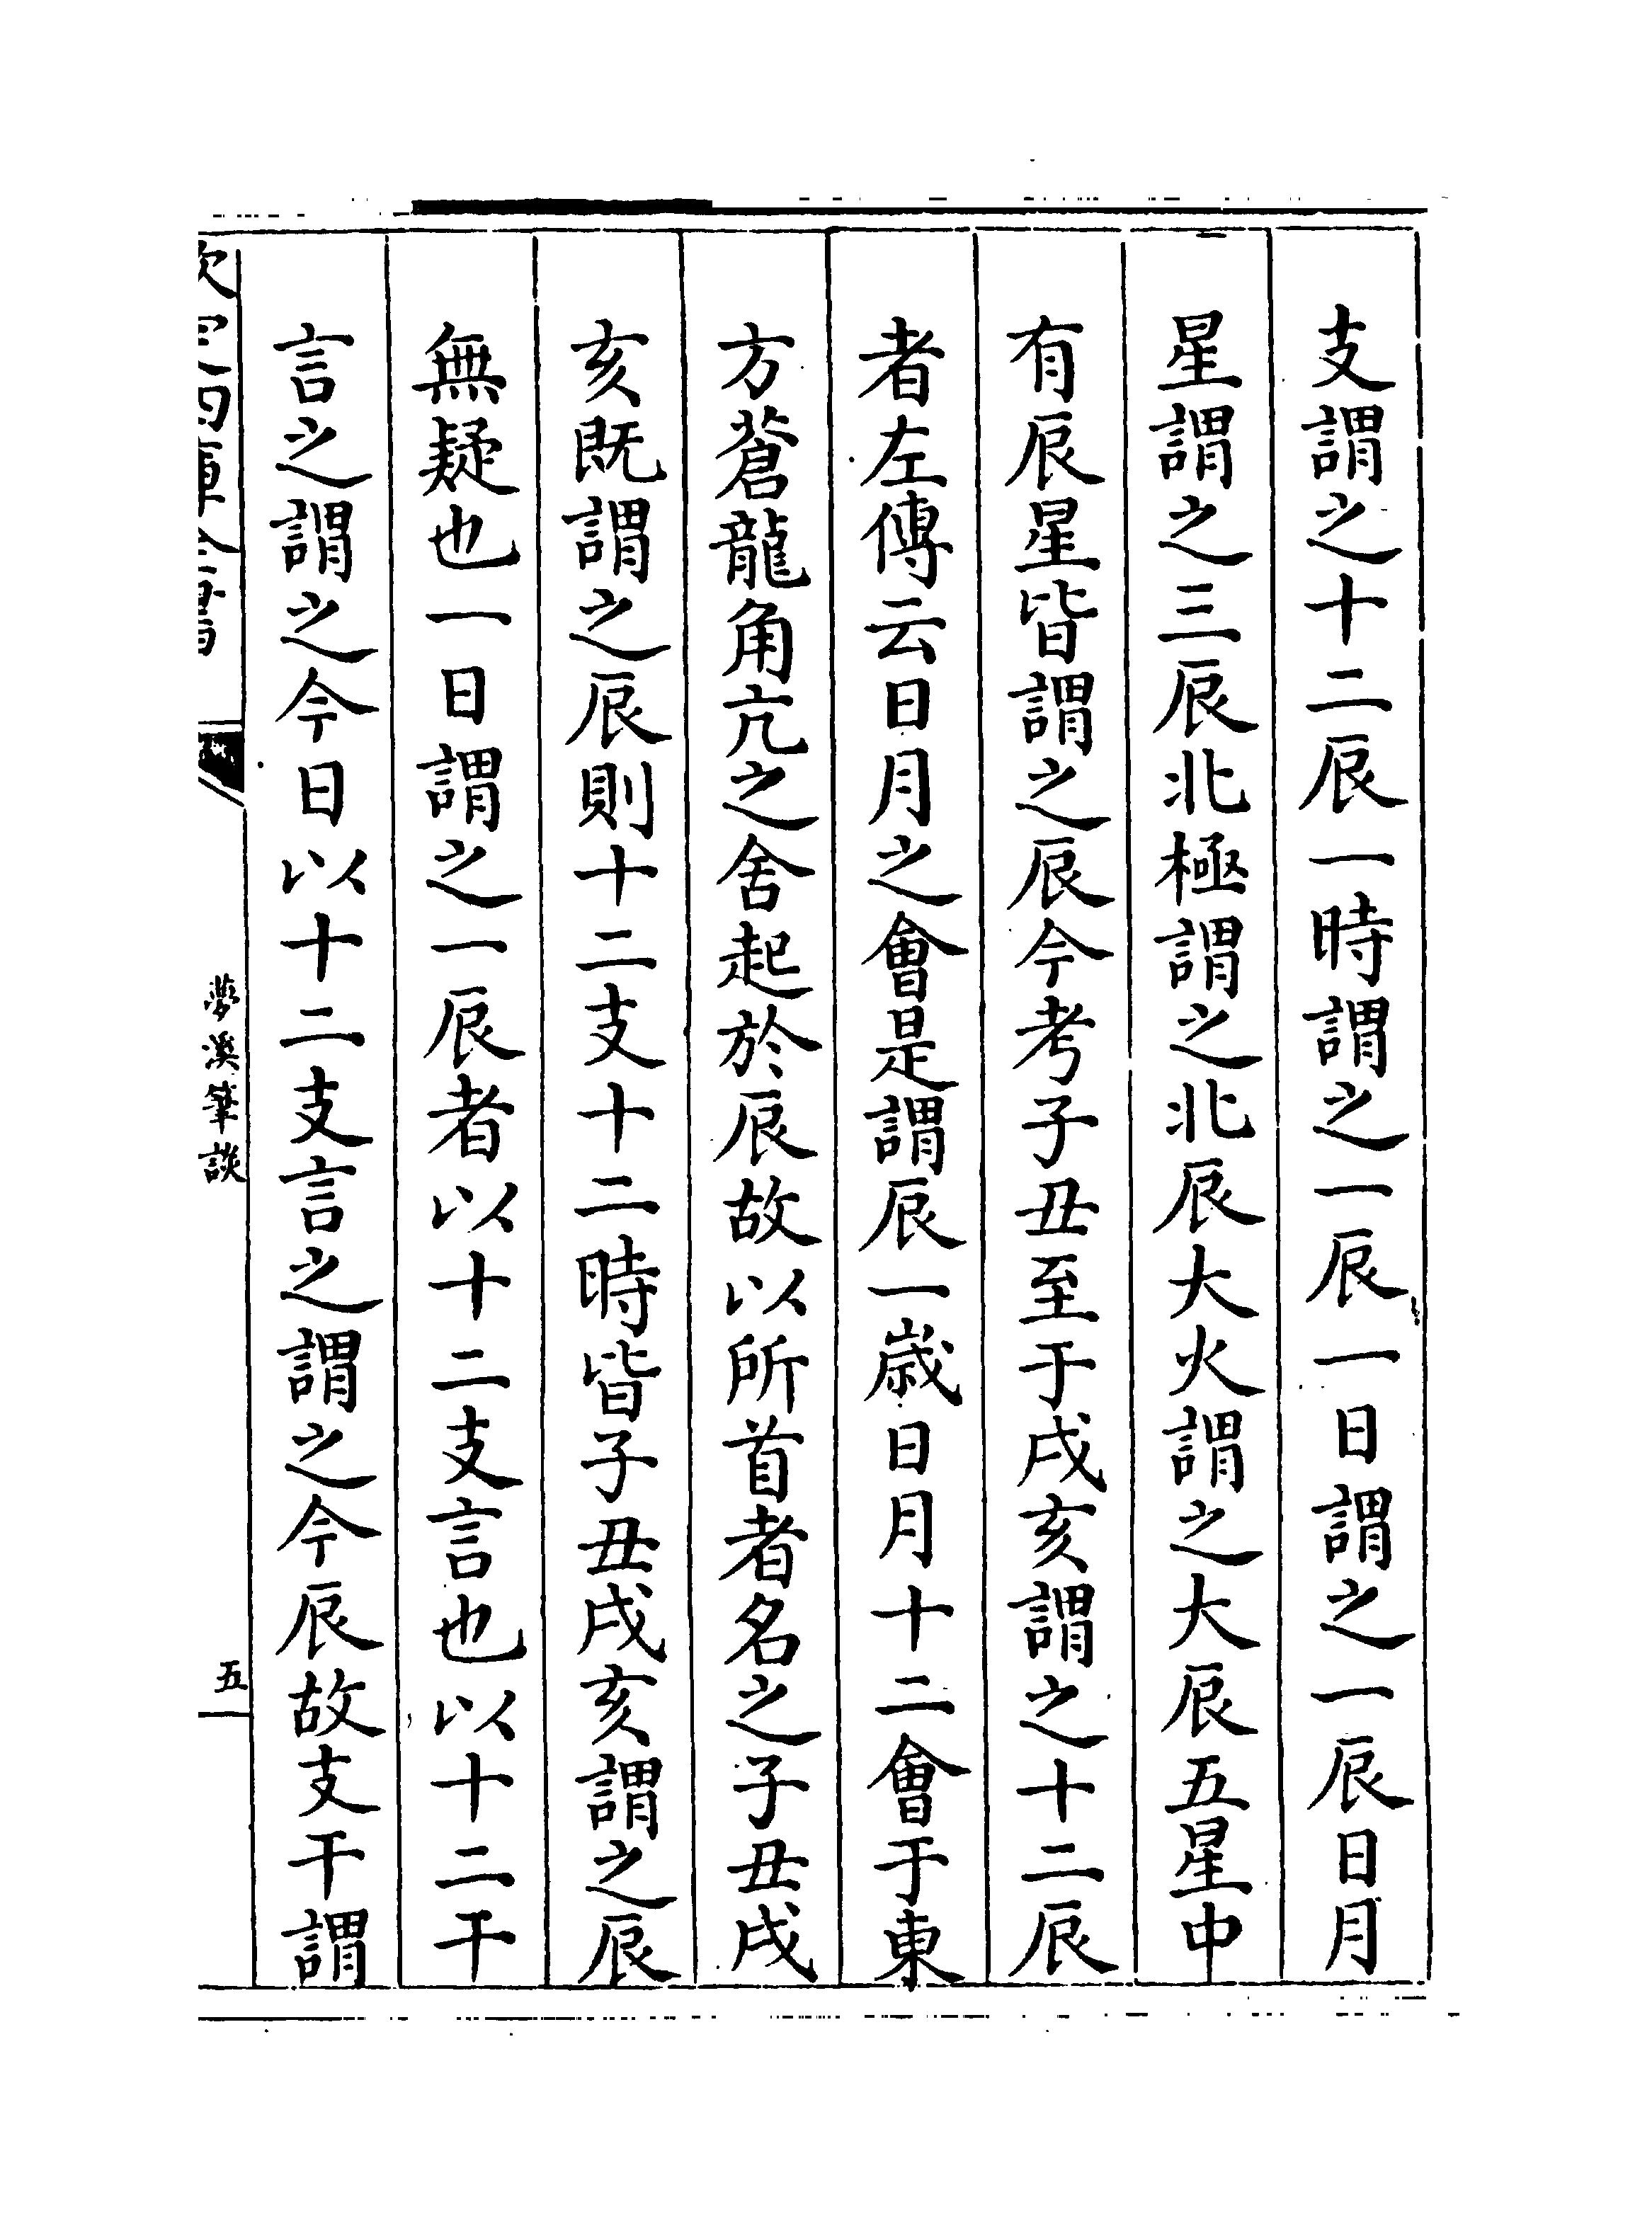 支謂之十二辰一時謂之一辰一日謂之一辰日月
星謂之三辰北極謂之北辰大火謂之大辰五星中
有辰星皆謂之辰今考子丑至于戌亥謂之十二辰
者左傳云日月之會是謂辰一歲日月十二會于東
方蒼龍角亢之舍起於辰故以所首者名之子丑戌
亥既謂之辰則十二支十二時皆子丑戌亥謂之辰
無疑也一日謂之一辰者以十二支言也以十二干
言之謂之今日以十二支言之謂之今辰故支干謂
欽定四庫全書
夢溪筆談
五